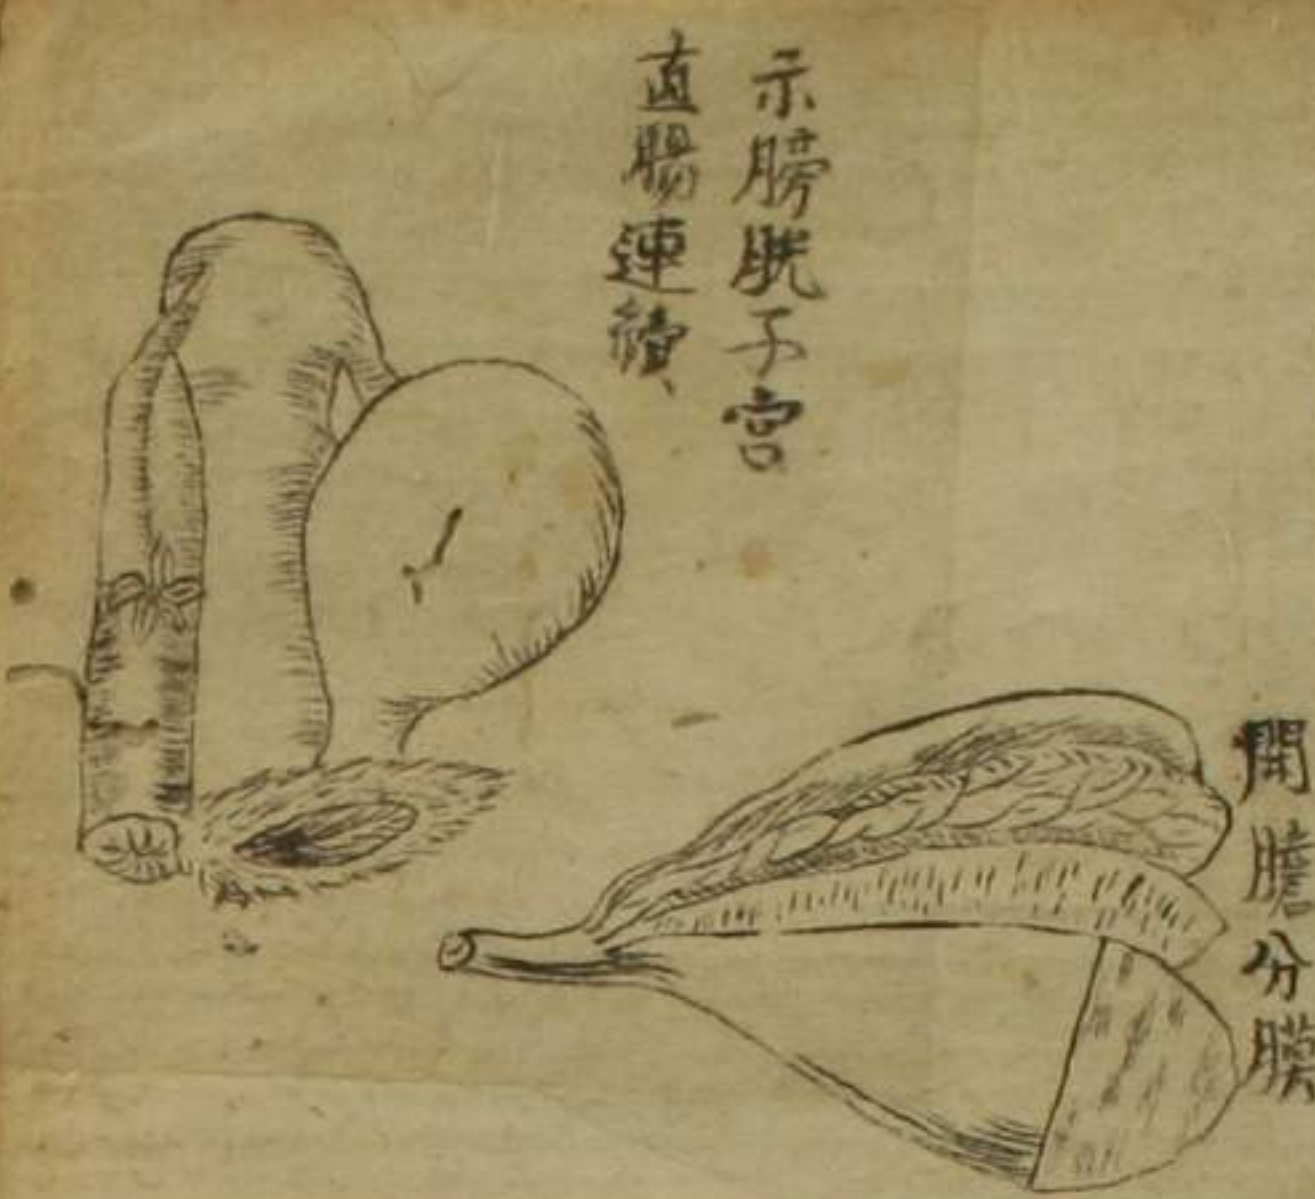 示膀胱子宮
直腸連續、
開膽分膜